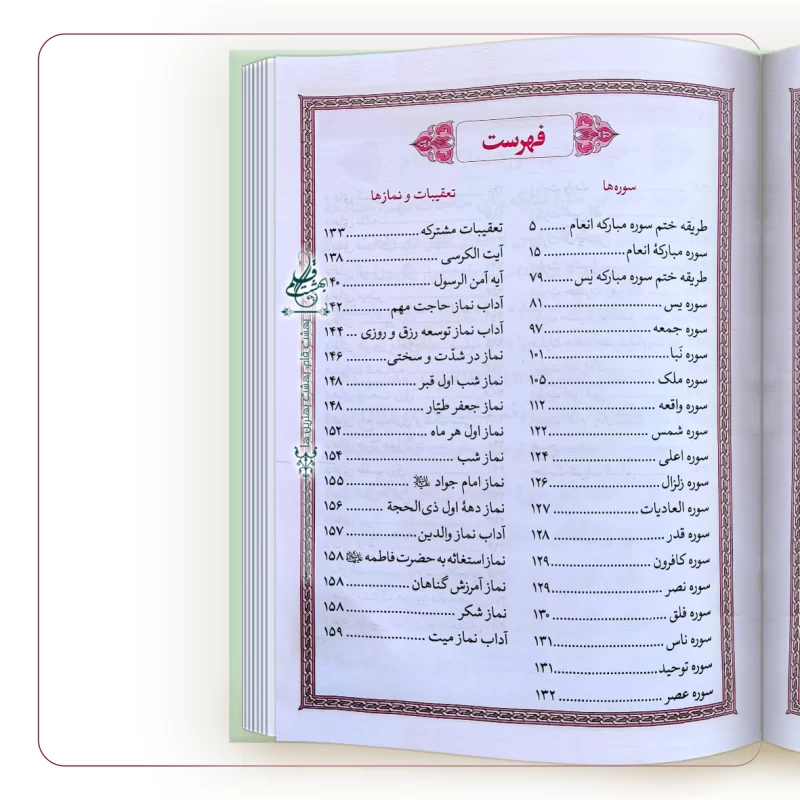 فهرست
سوره‌ها
طریقه ختم سوره مبارکه انعام ....... ۵
سوره مبارکهٔ انعام ....... ۱۵
طریقه ختم سوره مبارکه یٰس ....... ۷۹
سوره یس ....... ۸۱
سوره جمعه ....... ۹۷
سوره نَبا ....... ۱۰۱
سوره ملک ....... ۱۰۵
سوره واقعه ....... ۱۱۲
سوره شمس ....... ۱۲۲
سوره اعلی ....... ۱۲۴
سوره زلزال ....... ۱۲۶
سوره العادیات ....... ۱۲۷
سوره قدر ....... ۱۲۸
سوره کافرون ....... ۱۲۹
سوره نصر ....... ۱۲۹
سوره فلق ....... ۱۳۰
سوره ناس ....... ۱۳۱
سوره توحید ....... ۱۳۱
سوره عصر ....... ۱۳۲
تعقیبات و نمازها
تعقیبات مشترکه ....... ۱۳۳
آیت الکرسی ....... ۱۳۸
آیه آمن الرسول ....... ۴۰
آداب نماز حاجت مهم ....... ۴۲
آداب نماز توسعه رزق و روزی ... ۱۴۴
نماز در شدّت و سختی ....... ۱۴۶
نماز شب اول قبر ....... ۱۴۸
نماز جعفر طیّار ....... ۱۴۸
نماز اول هر ماه ....... ۱۵۲
نماز شب ....... ۱۵۴
نماز امام جواد ....... ۱۵۵
نماز دههٔ اول ذی‌الحجة ....... ۱۵۶
آداب نماز والدین ....... ۱۵۷
نماز استغاثه به حضرت فاطمه ۱۵۸
نماز آمرزش گناهان ....... ۱۵۸
نماز شکر ....... ۱۵۸
آداب نماز میت ....... ۱۵۹
بهشت قلم
بهشت قلم، بهشت بهترین‌ها